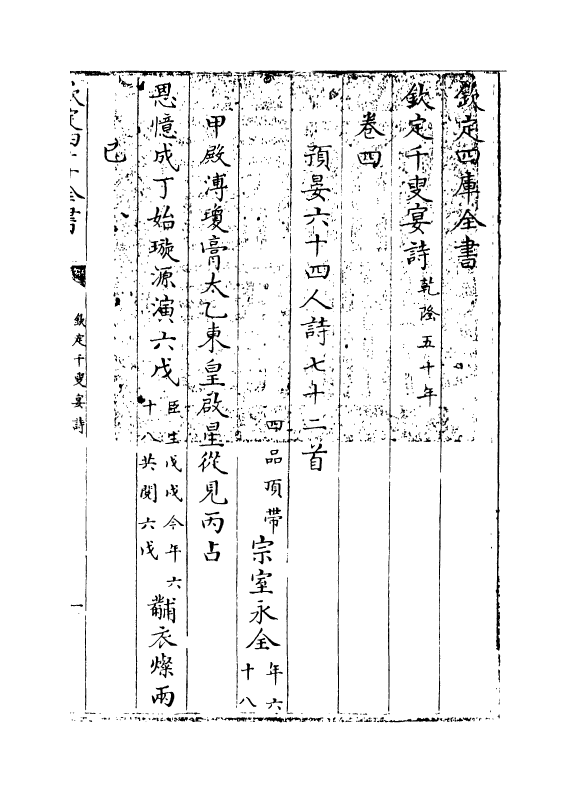 欽定四庫全書
欽定千叟宴詩乾隆五十年
卷四
預宴六十四人詩七十二首
四品頂帶宗室永全年六十八
甲殿溥瓊膏太乙東皇啟星從見丙占
恩憶成丁始璇源演六戊臣生戊戌今年六十八共閱六戊黼衣燦兩
己
欽定四庫全書
欽定千叟宴詩
一